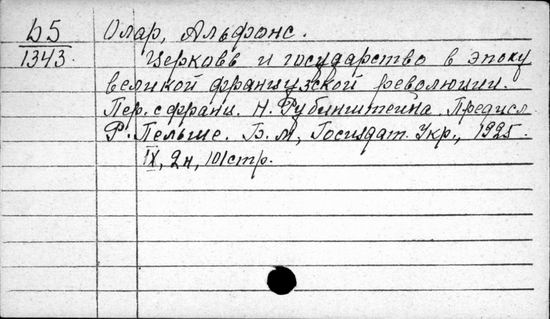 Ъ5
1343.
Олар, Альфонс.
Церковь и государство в эпоху
великой французской революции.
Пер. с франц. Н. Рубинштейна. Предисл.
Р. Пельше. Б.м., Госиздат. Укр., 1925.
IX, 2н, 101стр.